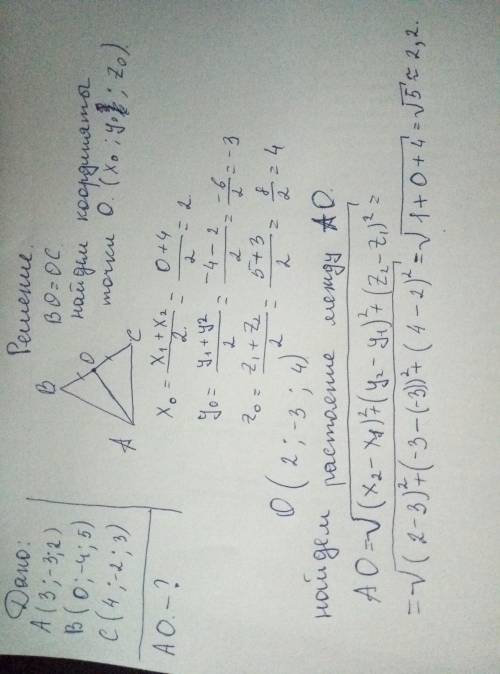 Дано:
A (3 ; -3 ; 2)
B (0 ; -4 ; 5)
C (4 ; -2 ; 3)
AO - ?
Решение.
B
O
A
C
BO = OC
найдем координаты
точки O. (x₀ ; y₀ ; z₀).
x₀ = (x₁ + x₂)/2 = (0+4)/2 = 2
y₀ = (y₁ + y2)/2 = (-4-2)/2 = -6/2 = -3
z₀ = (z₁ + z₂)/2 = (5+3)/2 = 8/2 = 4
O (2 ; -3 ; 4)
найдем растаение между AO.
AO = √((x₂ - x₁)² + (y₂ - y₁)² + (z₂ - z₁)²) =
= √((2-3)² + (-3-(-3))² + (4-2)²) = √(1+0+4) = √5 ≈ 2,2.